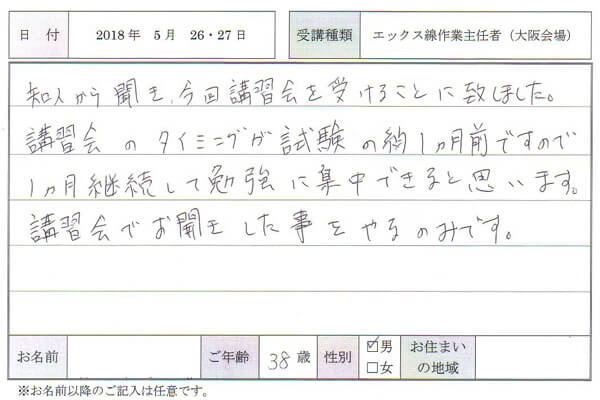 日 付 2018年 5月 26・27日 受講種類 エックス線作業主任者（大阪会場）
知人から聞き、今回講習会を受けることに致しました。
講習会のタイミングが試験の約1ヵ月前ですので
1ヵ月継続して勉強に集中できると思います。
講習会でお聞きした事をやるのみです。
お名前 ご年齢 38歳 性別 ☑男 □女 お住まいの地域
※お名前以降のご記入は任意です。